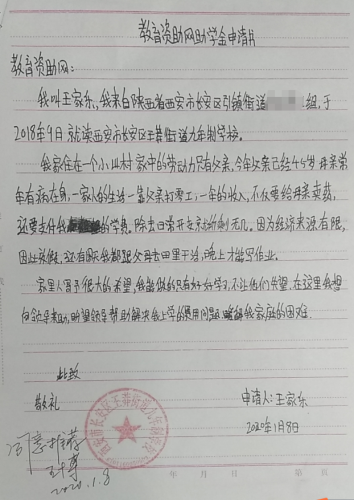 教育资助网助学金申请书
教育资助网:
我叫王家乐,我来自陕西省西安市长安区引镇街道 组,于
2018年9月就读西安市长安区王莽街道九年制学校。
我家住在一个小山村家中的劳动力只有父亲,今年父亲已经45岁母亲常
年有病在身,一家人的生活一靠父亲打零工,一年的收入,不仅要给母亲卖药,
还要支付我 的学费。除去日常开支就所剩无几。因为经济来源有限,
因此寒假,还有假天我都跟父母去田里干活,晚上才能写作业。
家里人寄予很大的希望,我能做的只有好好学习,不让他们失望。在这里我想
向领导求助,盼望领导帮助解决我上学的费用问题 缓解我家庭的困难.
此致
敬礼
申请人:王家乐
2020年1月8日
同意推荐
2020.1.8
年 月 日 第 页